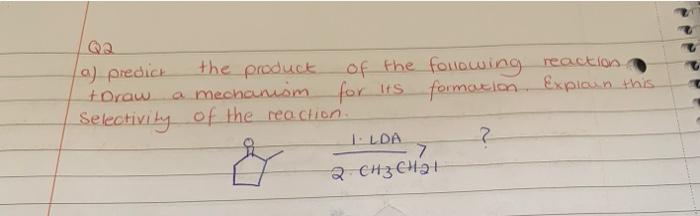 Q2
a) predict the product of the following reaction
+ Draw a mechanism for its formation. Explain this
selectivity of the reaction.
O
1. LDA
?
2. CH3CH2I